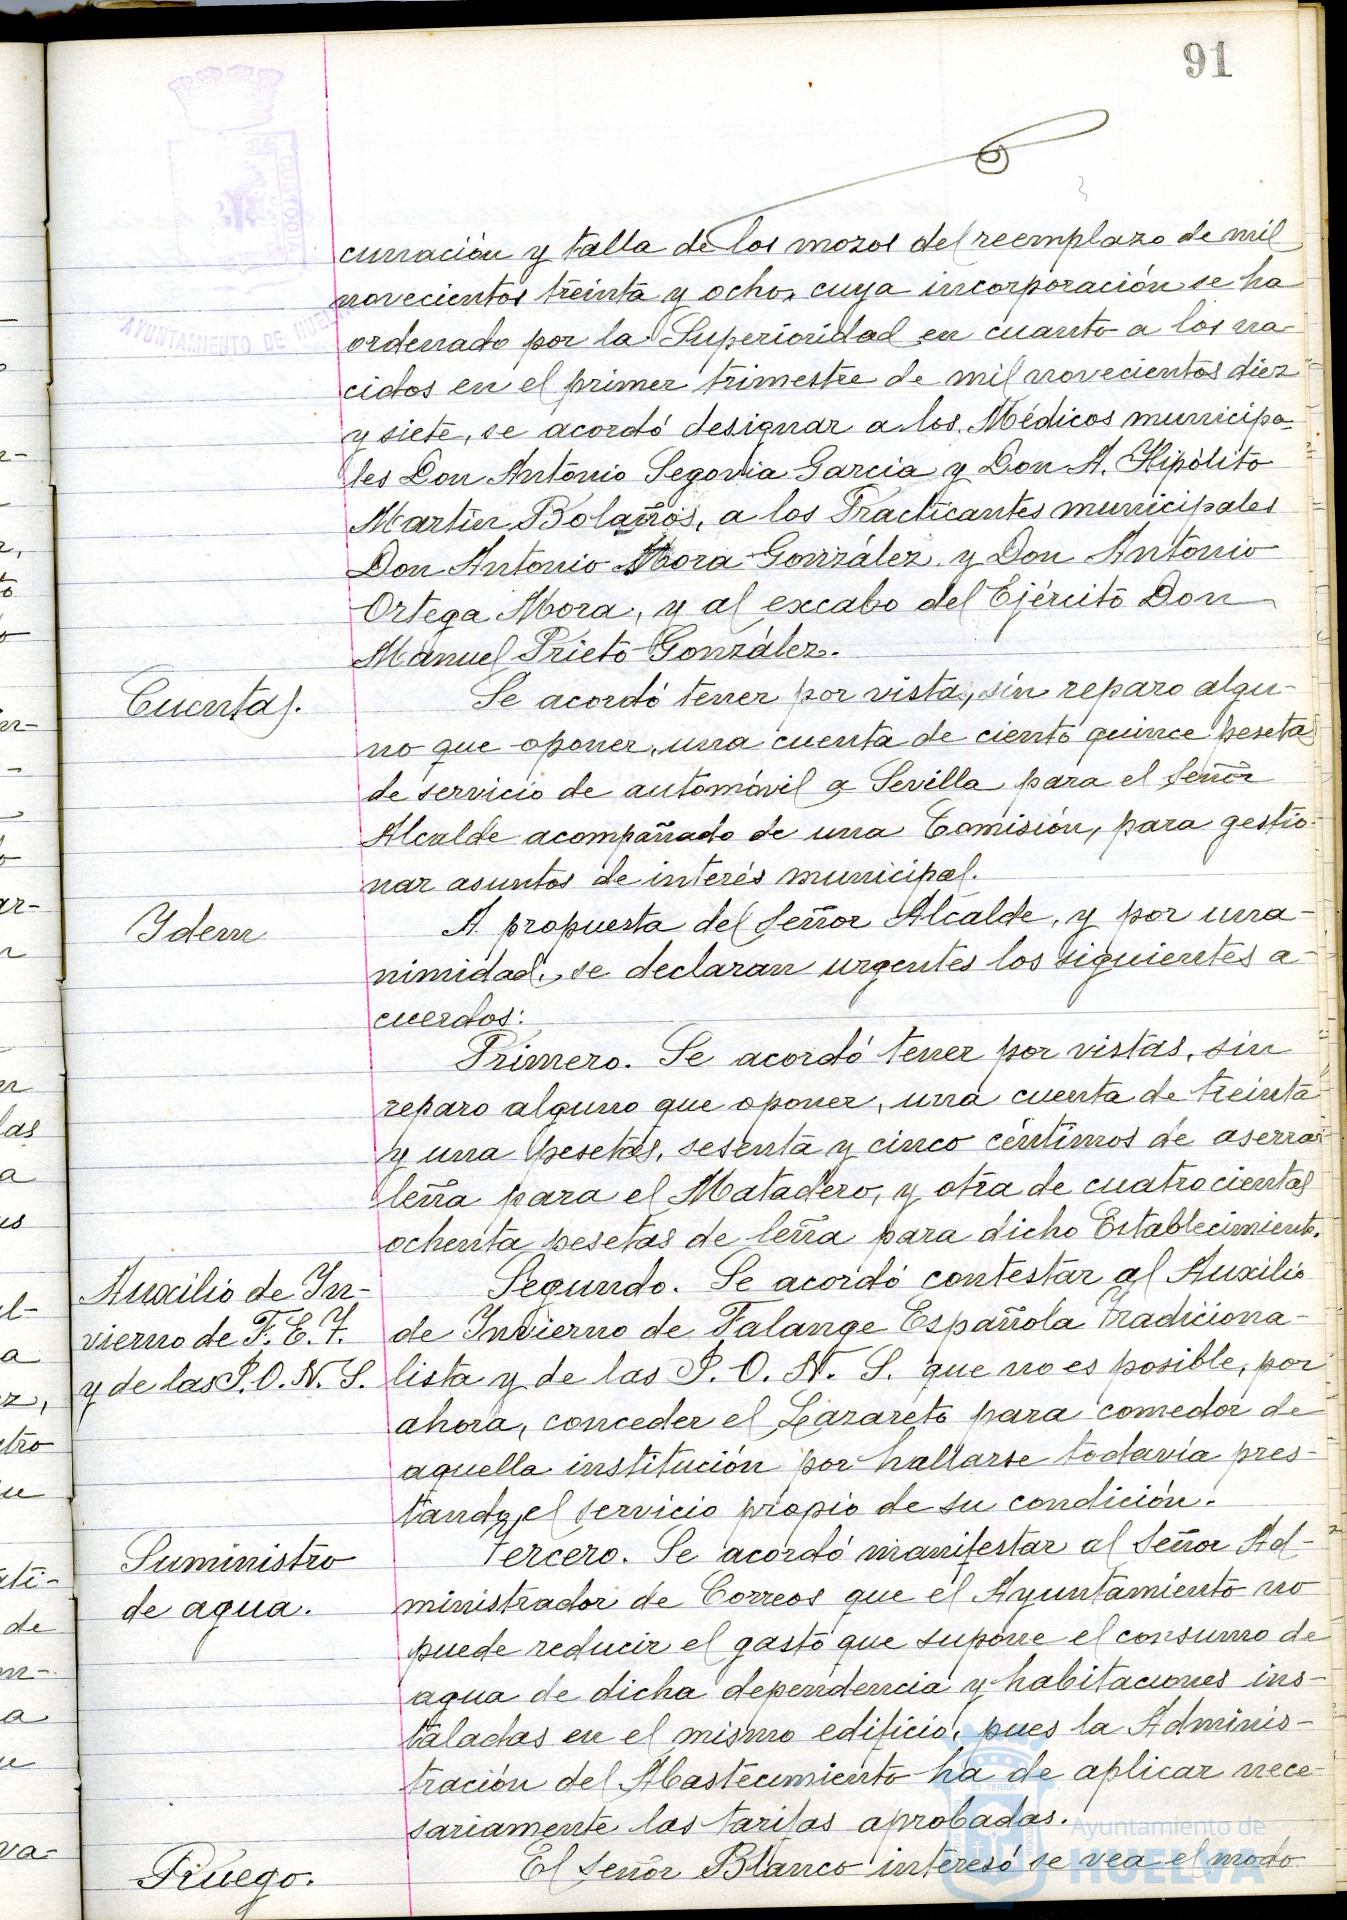 91
AYUNTAMIENTO DE HUELVA
curración y talla de los mozos del reemplazo de mil
novecientos treinta y ocho, cuya incorporación se ha
ordenado por la Superioridad en cuanto a los na-
cidos en el primer trimestre de mil novecientos diez
y siete, se acordó designar a los Médicos municipa-
les Don Antonio Segovia García y Don A. Hipólito
Martín Bolaños, a los Practicantes municipales
Don Antonio Mora González y Don Antonio
Ortega Mora, y al excabo del Ejército Don
Manuel Prieto González.
Cuentas.
Se acordó tener por vista, sin reparo algu-
no que oponer, una cuenta de ciento quince pesetas
de servicio de automóvil a Sevilla para el Señor
Alcalde acompañado de una Comisión, para gestio-
nar asuntos de interés municipal.
Ydem
A propuesta del Señor Alcalde, y por una-
nimidad, se declaran urgentes los siguientes a-
cuerdos:
Primero. Se acordó tener por vistas, sin
reparo alguno que oponer, una cuenta de treinta
y una pesetas, sesenta y cinco céntimos de aserrar
leña para el Matadero, y otra de cuatrocientas
ochenta pesetas de leña para dicho Establecimiento.
Auxilio de In-
vierno de F. E. T.
y de las J. O. N. S.
Segundo. Se acordó contestar al Auxilio
de Invierno de Falange Española Tradiciona-
lista y de las J. O. N. S. que no es posible, por
ahora, conceder el Lazareto para comedor de
aquella institución por hallarse todavía pres-
tando el servicio propio de su condición.
Suministro
de agua.
Tercero. Se acordó manifestar al Señor Ad-
ministrador de Correos que el Ayuntamiento no
puede reducir el gasto que supone el consumo de
agua de dicha dependencia y habitaciones ins-
taladas en el mismo edificio, pues la Adminis-
tración del Abastecimiento ha de aplicar nece-
sariamente las tarifas aprobadas.
Ruego.
El Señor Blanco interesó se vea el modo
Ayuntamiento de
HUELVA